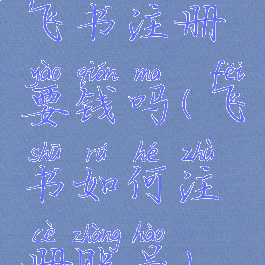 飞书注册
yào qián ma fēi
要钱吗(飞
shū rú hé zhù
书如何注
cè zhàng hào
册账号)